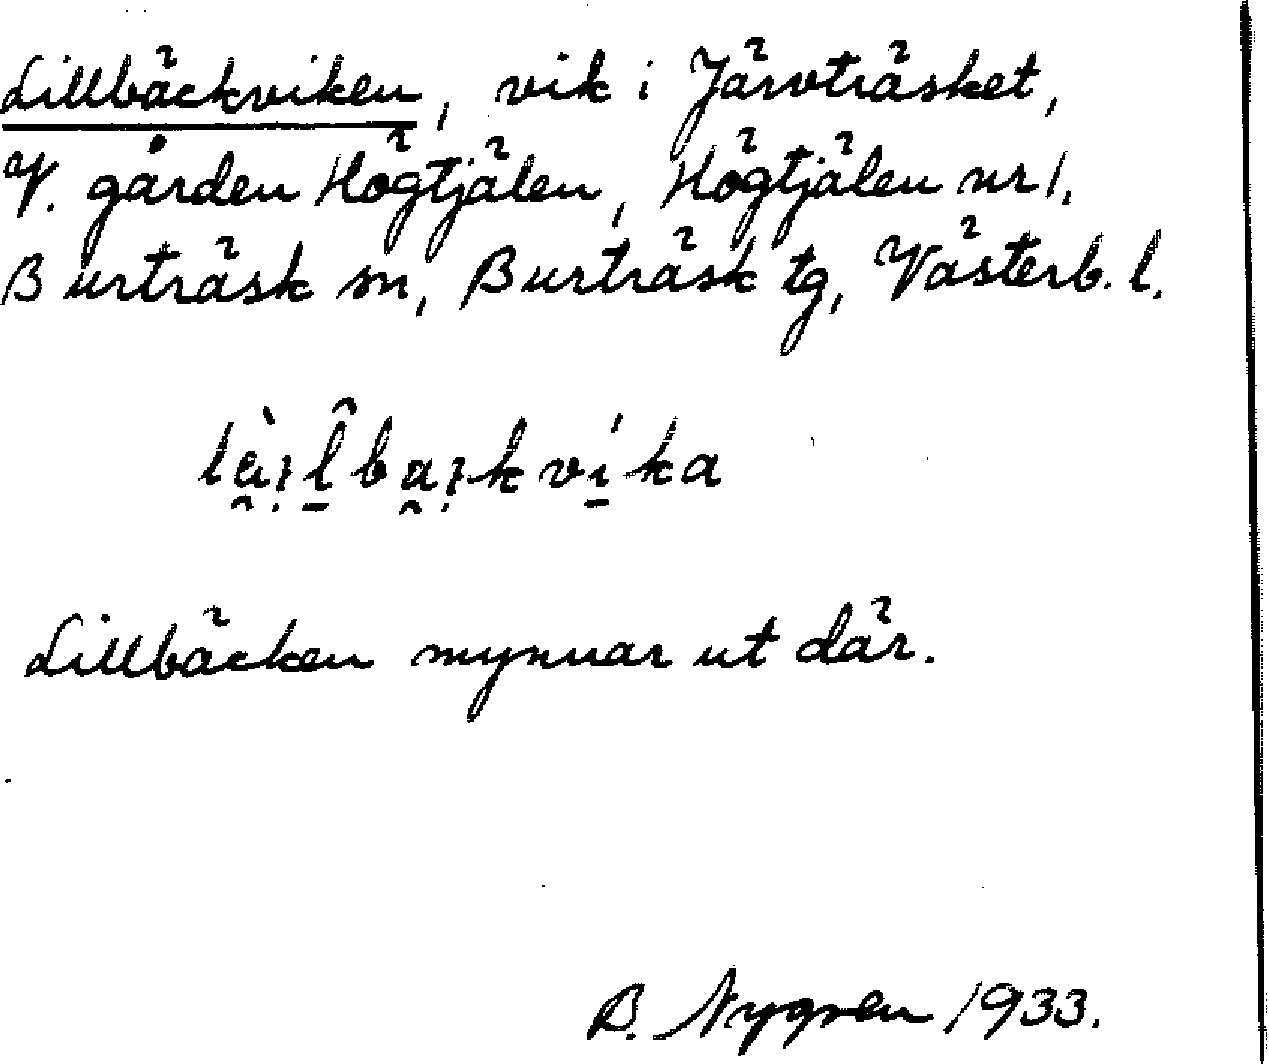 Lillbäckviken, vik i Järvträsket,
V. gården Högtjälen, Högtjälen nr 1.
Burträsk sn, Burträsk tg, Västerb. l.
Lillbäcken mynnar ut där.
B. Nygren 1933.